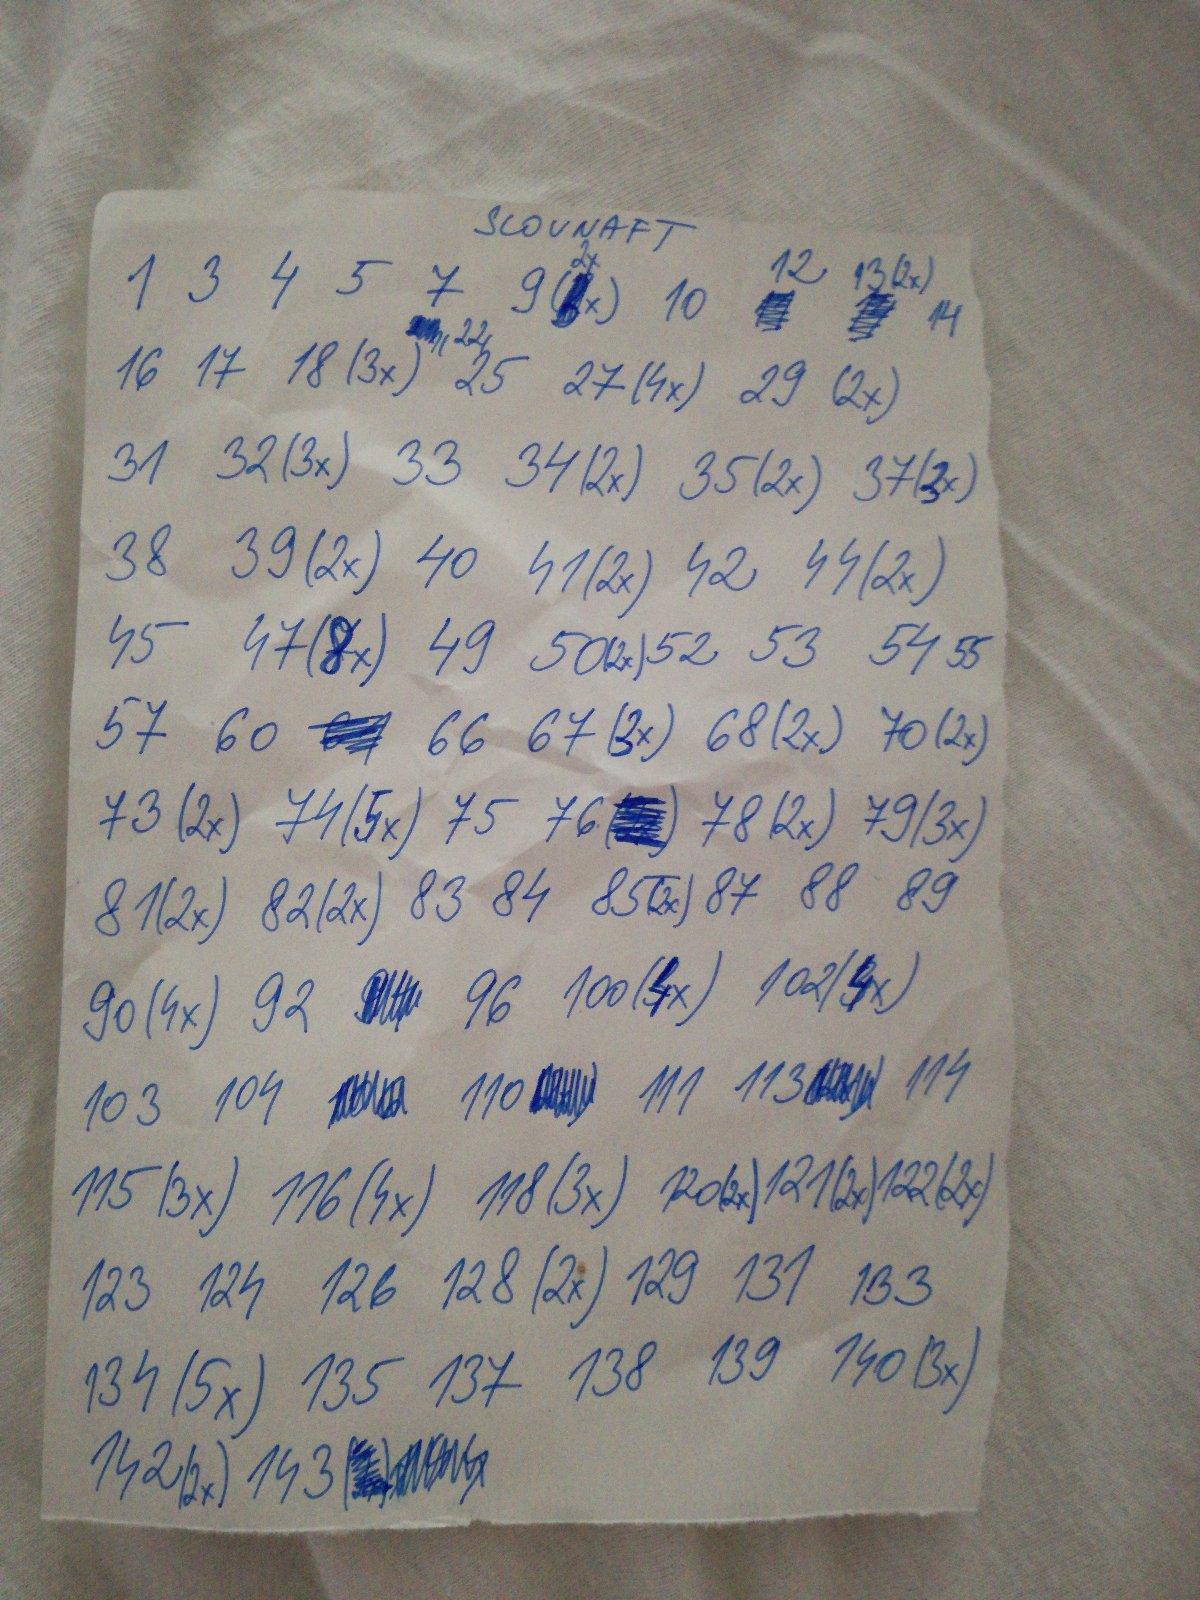 SLOVNAFT
1 3 4 5 7 9 (2x) 10 12 13(2x) 14
16 17 18 (3x) 22, 25 27 (4x) 29 (2x)
31 32 (3x) 33 34 (2x) 35 (2x) 37 (3x)
38 39 (2x) 40 41 (2x) 42 44 (2x)
45 47 (8x) 49 50 (2x) 52 53 54 55
57 60 66 67 (3x) 68 (2x) 70 (2x)
73 (2x) 74 (5x) 75 76 78 (2x) 79 (3x)
81 (2x) 82 (2x) 83 84 85 (2x) 87 88 89
90 (4x) 92 96 100 (4x) 102 (4x)
103 104 110 111 113 114
115 (3x) 116 (4x) 118 (3x) 120 (2x) 121 (2x) 122 (2x)
123 124 126 128 (2x) 129 131 133
134 (5x) 135 137 138 139 140 (3x)
142 (2x) 143